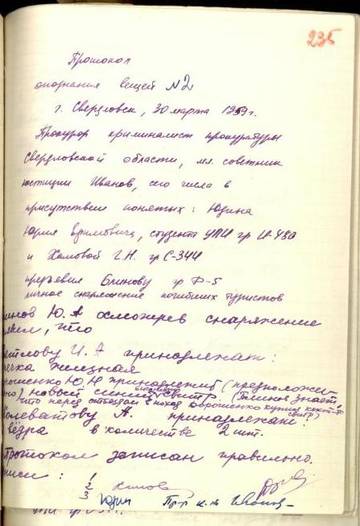 235
Протокол
опознания вещей №2
г. Свердловск, 30 марта 1959г.
Прокурор криминалист прокуратуры
Свердловской области, мл. советник
юстиции Иванов, сего числа в
присутствии понятых: Юдина
Юрия Ефимовича, студента УПИ гр И-450
и Хамовой Г.Н. гр С-344
предъявил Блинову гр Ф-5
личное снаряжение погибших туристов
Ю.А осмотрев снаряжение
что
И.А принадлежат:
Ю.Н принадлежит (предположи-
новый свитр. (Блинов знает
что перед поход Дорошенко купил
Колеватову А. принадлежат:
вёдра в количестве 2 шт.
Протокол записан правильно.
1
2
3 Юдин Пр-р к-т Иванов